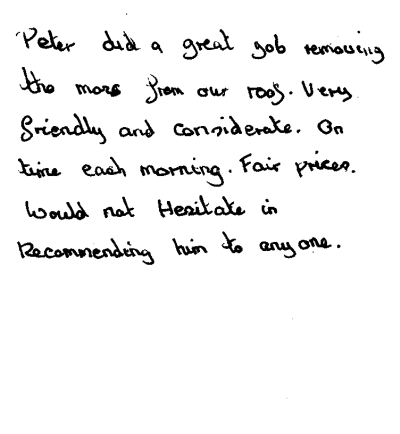 Peter did a great job removing
the moss from our roof. Very
friendly and considerate. On
time each morning. Fair prices.
Would not Hesitate in
Recommending him to anyone.